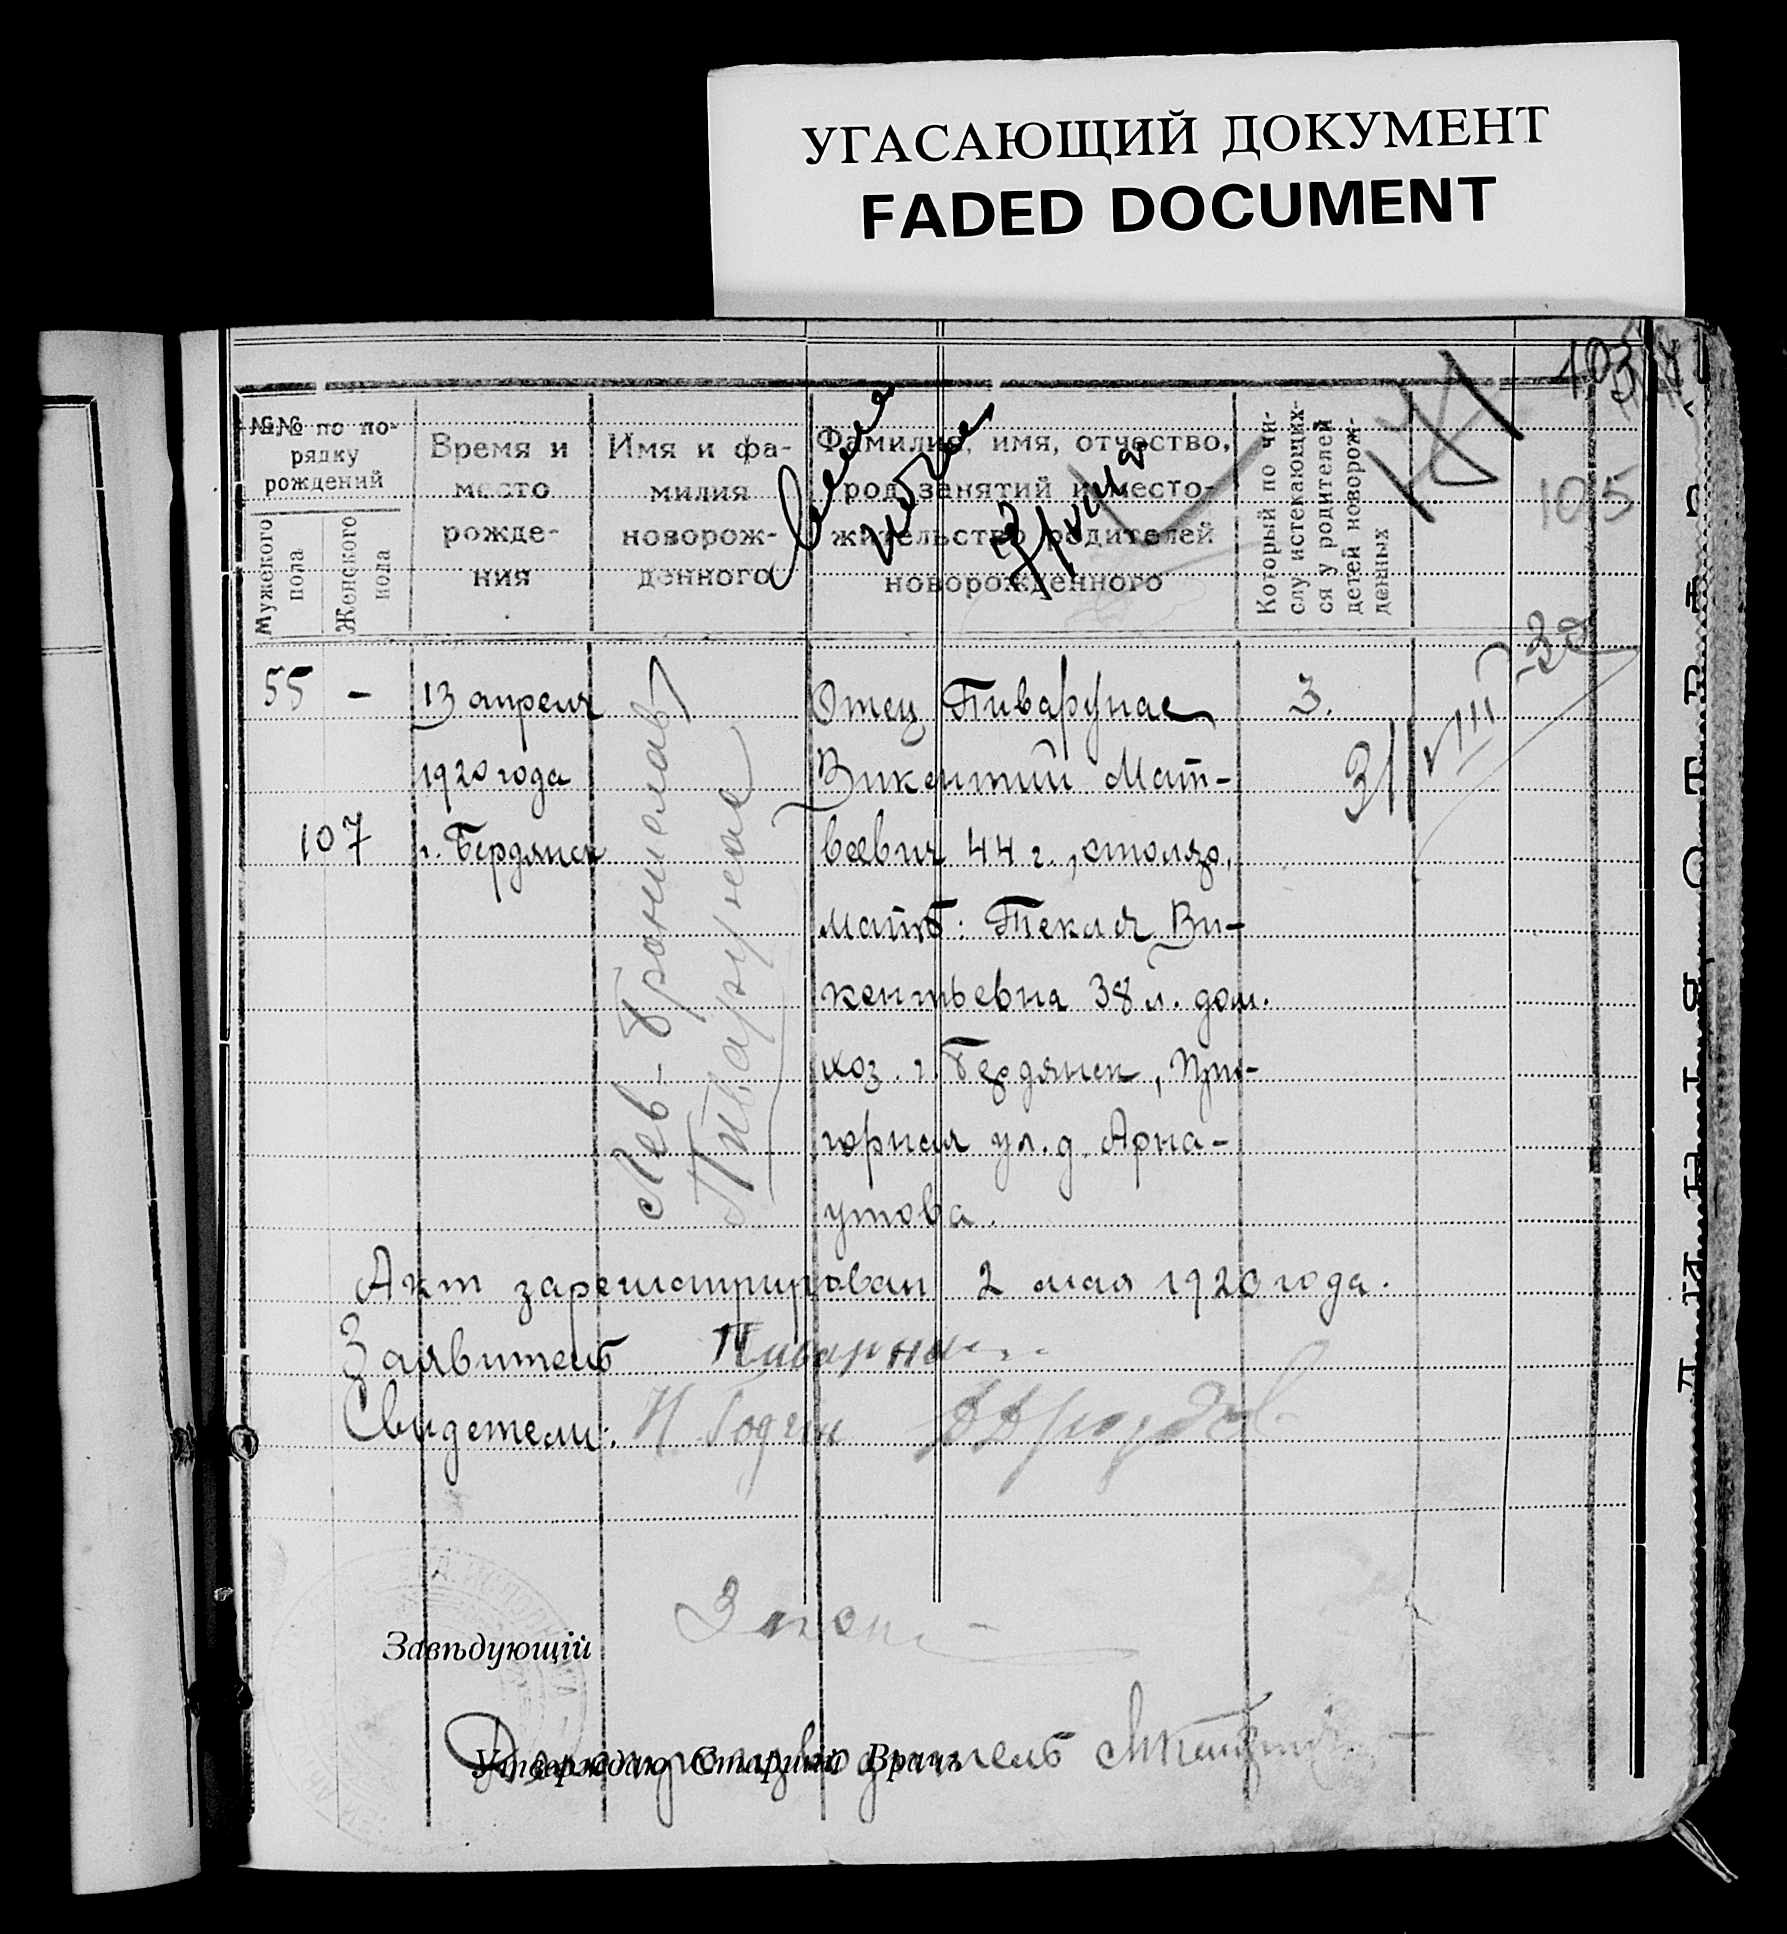 УГАСАЮЩИЙ ДОКУМЕНТ
FADED DOCUMENT
103
105
№№ по по-
рядку
рождений
Мужеского
пола
Женского
пола
Время и
место
рожде-
ния
Имя и фа-
милия
новорож-
денного
Фамилия, имя, отчество,
род занятий и место-
жительство родителей
новорожденного
Который по чи-
слу истекающих-
ся у родителей
детей новорож-
денных
55 -
107
13 апреля
1920 года
г. Бердянск
Лев-Бронислав
Пиварунас
Отец Пиварунас
Викентий Мат-
веевич 44 г., столяр,
мать: Текля Ви-
кентьевна 38 л. дом.
хоз. г. Бердянск, При-
горная ул. д. Арна-
утова.
3.
31 VIII
Акт зарегистрирован 2 мая 1920 года.
Заявитель
Свидетели:
Завѣдующій
Утверждаю Старшій Врачъ
Делопроизводитель